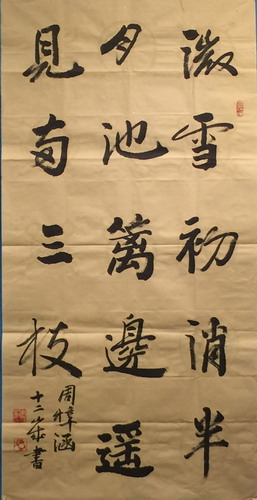 微雪初消半
月池篱邊遥
見两三枝
周障涵
十二歲書